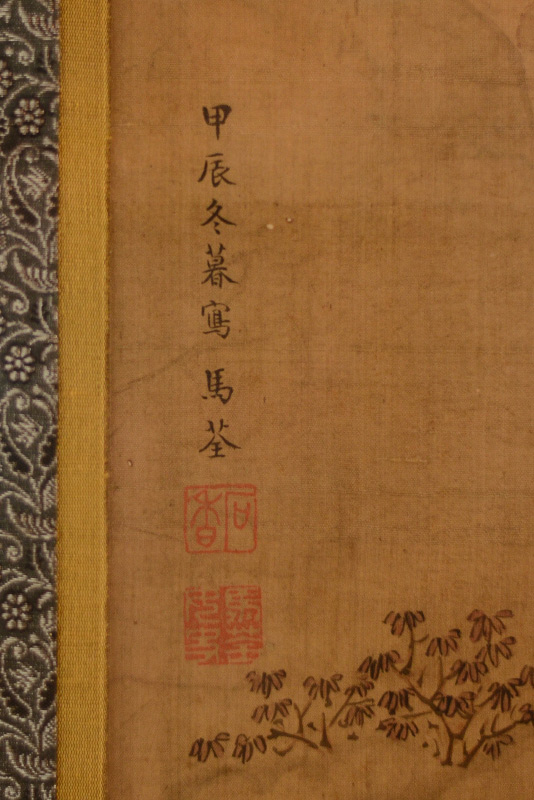 甲辰冬暮寫 馬荃